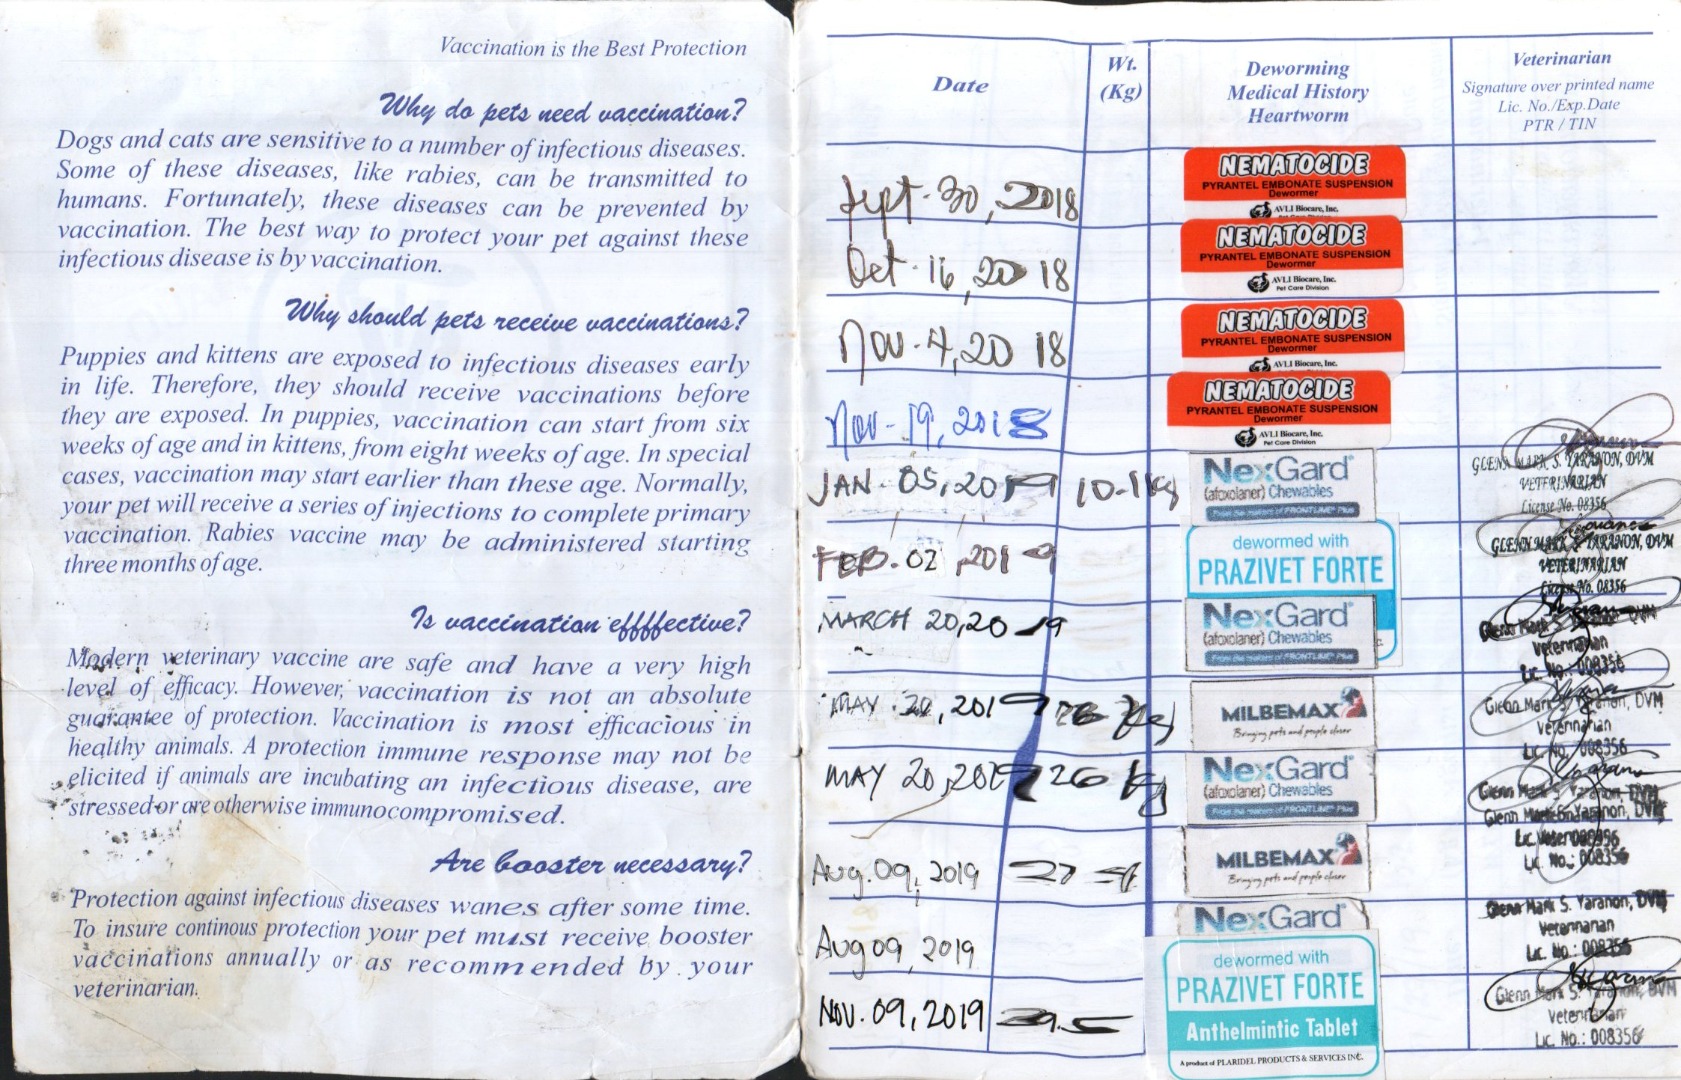 Vaccination is the Best Protection
Why do pets need vaccination?
Dogs and cats are sensitive to a number of infectious diseases.
Some of these diseases, like rabies, can be transmitted to
humans. Fortunately, these diseases can be prevented by
vaccination. The best way to protect your pet against these
infectious disease is by vaccination.
Why should pets receive vaccinations?
Puppies and kittens are exposed to infectious diseases early
in life. Therefore, they should receive vaccinations before
they are exposed. In puppies, vaccination can start from six
weeks of age and in kittens, from eight weeks of age. In special
cases, vaccination may start earlier than these age. Normally,
your pet will receive a series of injections to complete primary
vaccination. Rabies vaccine may be administered starting
three months of age.
Is vaccination effffective?
Modern veterinary vaccine are safe and have a very high
level of efficacy. However, vaccination is not an absolute
guarantee of protection. Vaccination is most efficacious in
healthy animals. A protection immune response may not be
elicited if animals are incubating an infectious disease, are
stressed or are otherwise immunocompromised.
Are booster necessary?
Protection against infectious diseases wanes after some time.
To insure continous protection your pet must receive booster
vaccinations annually or as recommended by your
veterinarian.
Date
Wt.
(Kg)
Deworming
Medical History
Heartworm
Veterinarian
Signature over printed name
Lic. No./Exp.Date
PTR / TIN
Sept. 30, 2018
NEMATOCIDE
PYRANTEL EMBONATE SUSPENSION
Dewormer
AVLI Biocare, Inc.
Oct. 16, 2018
NEMATOCIDE
PYRANTEL EMBONATE SUSPENSION
Dewormer
AVLI Biocare, Inc.
Pet Care Division
Nov. 4, 2018
NEMATOCIDE
PYRANTEL EMBONATE SUSPENSION
Dewormer
AVLI Biocare, Inc.
Nov. 19, 2018
NEMATOCIDE
PYRANTEL EMBONATE SUSPENSION
Dewormer
AVLI Biocare, Inc.
Pet Care Division
JAN. 05, 2019 10.1kg
NexGard
(afoxolaner) Chewables
From the makers of FRONTLINE Plus
GLENN MARK S. YARANON, DVM
VETERINARIAN
License No. 08356
FEB. 02, 2019
dewormed with
PRAZIVET FORTE
GLENN MARK S. YARANON, DVM
VETERINARIAN
License No. 08356
MARCH 20, 2019
NexGard
(afoxolaner) Chewables
From the makers of FRONTLINE Plus
Glenn Mark DVM
Veterinarian
Lic. No.: 008356
MAY 20, 2019 26 kg
MILBEMAX
Bringing pets and people closer
Glenn Mark S. Yaranon, DVM
Veterinarian
Lic. No. 008356
MAY 20, 2019 26 kg
NexGard
(afoxolaner) Chewables
From the makers of FRONTLINE Plus
Glenn Mark S. Yaranon, DVM
Glenn Mark S. Yaranon, DVM
Lic. No.: 008356
Aug. 09, 2019 27
MILBEMAX
Bringing pets and people closer
Aug 09, 2019
NexGard
Glenn Mark S. Yaranon, DVM
Veterinarian
Lic. No.: 008356
NOV. 09, 2019 29.5
dewormed with
PRAZIVET FORTE
Anthelmintic Tablet
A product of PLARIDEL PRODUCTS & SERVICES INC.
Glenn Mark S. Yaranon, DVM
Veterinarian
Lic. No.: 008356